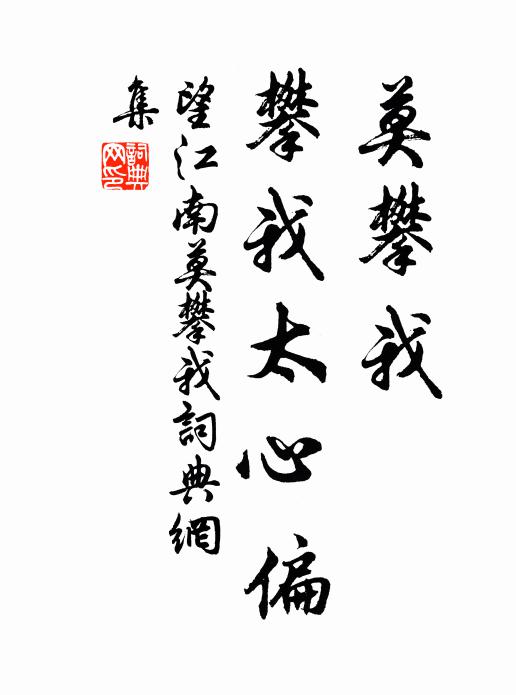 莫攀我
攀我太心偏
望江南莫攀我詞典網
集
詞典網印